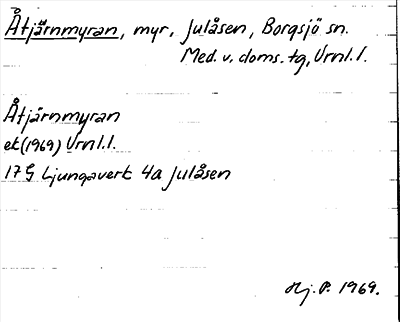 Åtjärnmyran, myr, Julåsen, Borgsjö sn.
Med. v. doms. tg, Vrnl. l.
Åtjärnmyran
ek (1969) Vrnl. l.
17 G Ljungaverk 4a Julåsen
Hj. P. 1969.